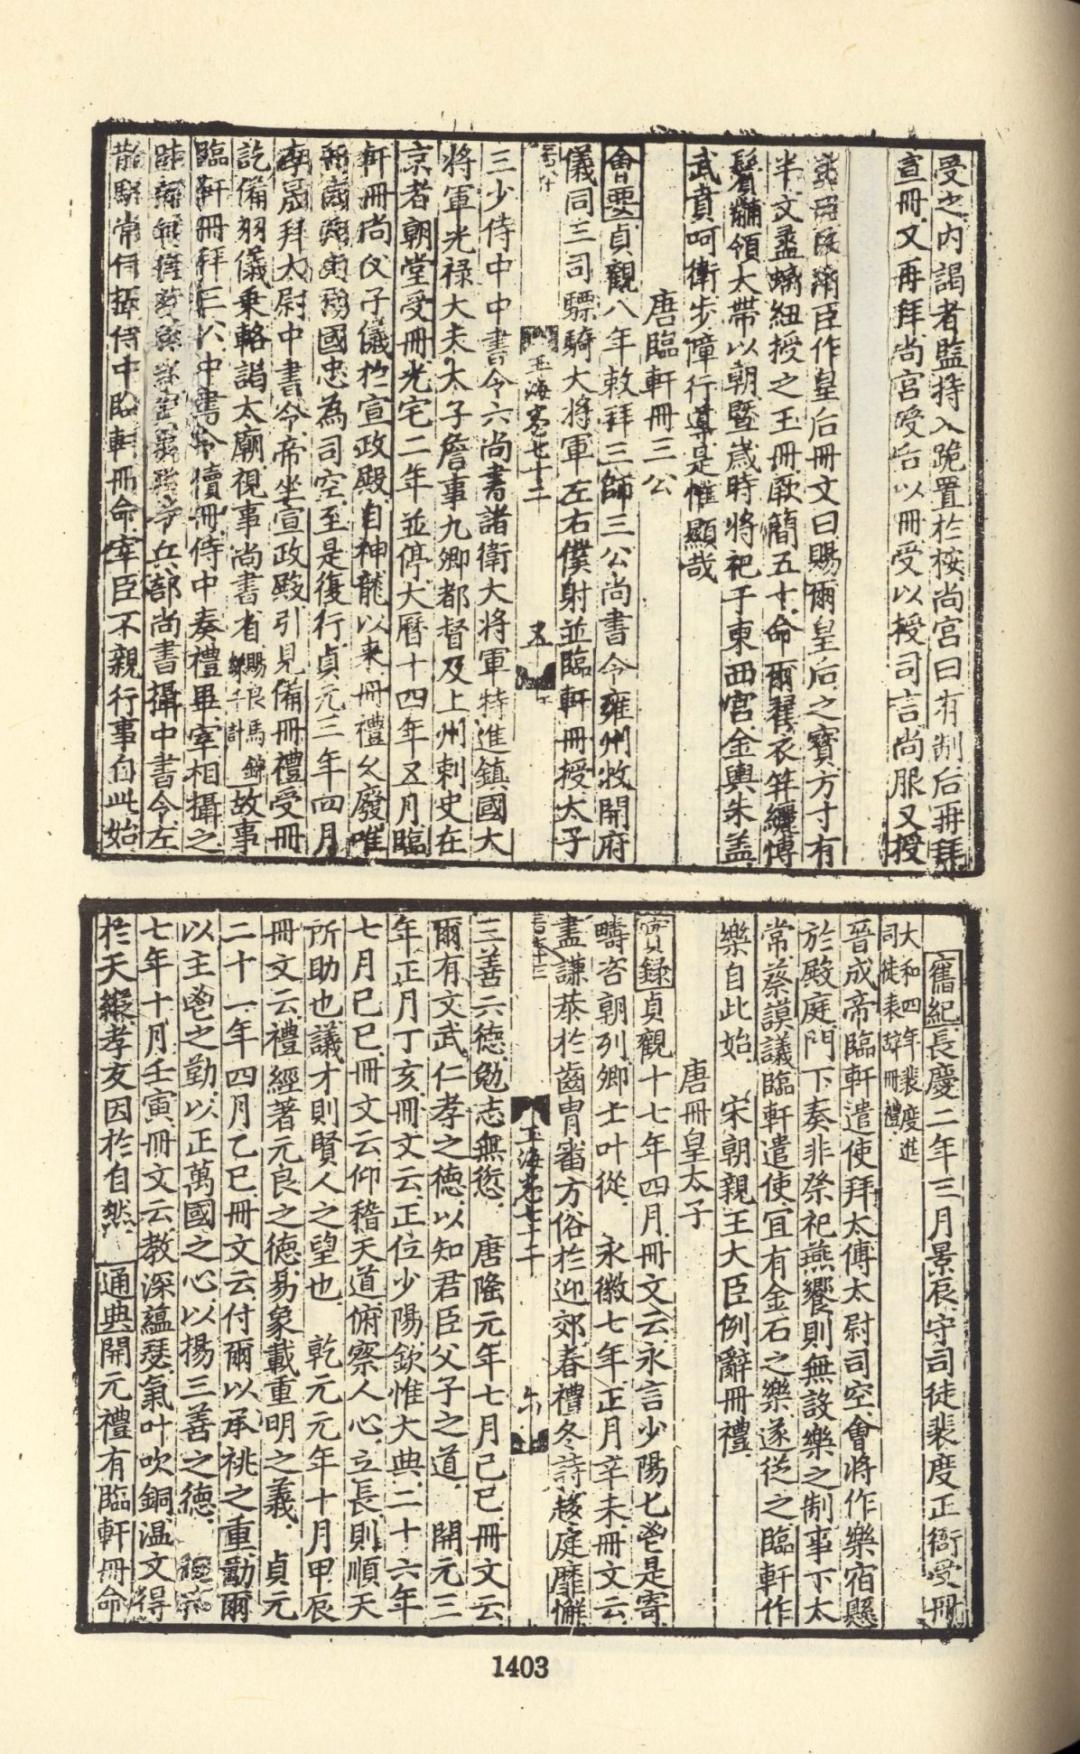 受之内謁者監持入跪置於桉尚宮曰有制后再拜
宣冊又再拜尚宮受后以冊受以授司言尚服又授
臣作皇后冊文曰賜爾皇后之寶方寸有
半文盝螭紐授之玉冊厥簡五十命爾翟衣笄纚博
鬢黼領大帶以朝暨歲時將祀于東西宮金輿朱蓋
武賁呵衛步障行導是惟顯哉
唐臨軒冊三公
會要貞觀八年敕拜三師三公尚書令雍州牧開府
儀同三司驃騎大將軍左右僕射並臨軒冊授太子
玉海卷七十二
五
三少侍中中書令六尚書諸衛大將軍特進鎮國大
將軍光祿大夫太子詹事九卿都督及上州刺史在
京者朝堂受冊光宅二年並停大曆十四年五月臨
軒冊尚父子儀於宣政殿自神龍以來冊禮久廢唯
國忠為司空至是復行貞元三年四月
李晟拜太尉中書令帝坐宣政殿引見備冊禮受冊
訖備羽儀乗輅謁太廟視事尚書省賜良馬錦綵千計故事
臨軒冊拜三公中書令讀冊侍中奏禮畢宰相攝之
兵部尚書攝中書令左
散騎常侍攝侍中臨軒冊命宰臣不親行事自此始
舊紀長慶二年三月景辰守司徒裴度正衙受冊
大和四年裴度進
司徒表辭冊禮
晉成帝臨軒遣使拜太傅太尉司空會將作樂宿懸
於殿庭門下奏非祭祀燕饗則無設樂之制事下太
常蔡謨議臨軒遣使宜有金石之樂遂從之臨軒作
樂自此始 宋朝親王大臣例辭冊禮
唐冊皇太子
實錄貞觀十七年四月冊文云永言少陽匕鬯是寄
疇咨朝列卿士叶從 永徽七年正月辛未冊文云
盡謙恭於齒胄審方俗於迎郊春禮冬詩趍庭靡懈
玉海卷七十二
三善六德勉志無愆 唐隆元年七月己巳冊文云
爾有文武仁孝之德以知君臣父子之道 開元三
年正月丁亥冊文云正位少陽欽惟大典二十六年
七月己巳冊文云仰稽天道俯察人心立長則順天
所助也議才則賢人之望也 乾元元年十月甲辰
冊文云禮經著元良之德易象載重明之義 貞元
二十一年四月乙巳冊文云付爾以承祧之重勵爾
以主鬯之勤以正萬國之心以揚三善之德
七年十月壬寅冊文云教深蘊瑟氣叶吹銅溫文得
於天縱孝友因於自然 通典開元禮有臨軒冊命
1403